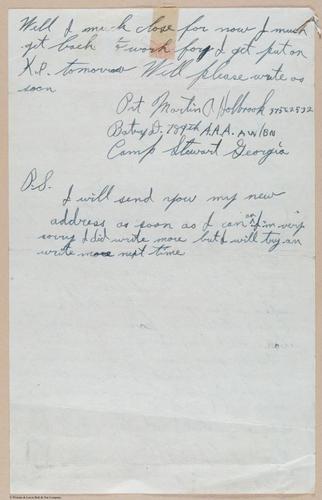 Will I much close for now I much
get back to work for I get put on
K.P. tomorrow Will please write as
soon
Pvt Martin A Holbrook
Batry D. 789th A.A.A. AW/BN
Camp Stewart Georgia
P.S.
I will send you my new
address as soon as I can an I'm very
sorry I did write more but I will try an
write more next time